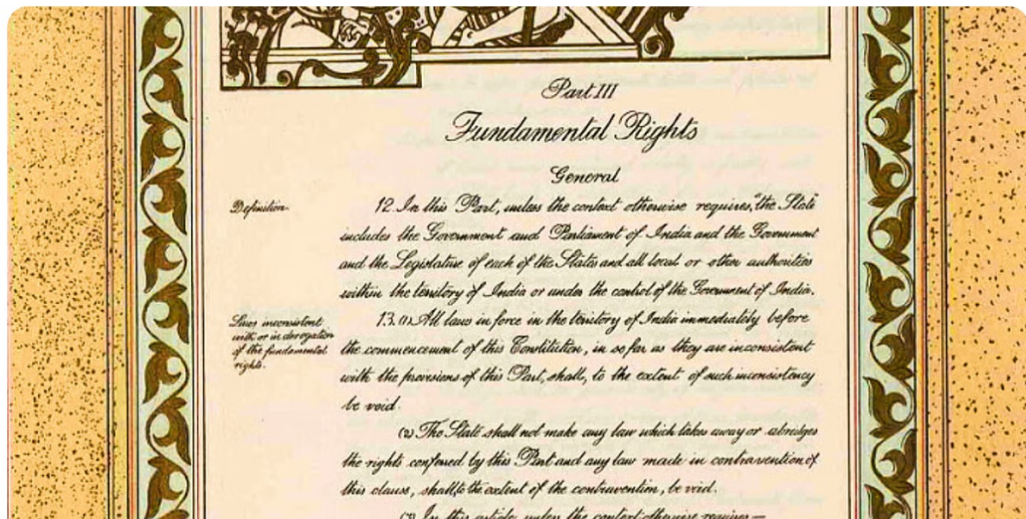 Part III
Fundamental Rights
General
Definition.
12. In this Part, unless the context otherwise requires, "the State"
includes the Government and Parliament of India and the Government
and the Legislature of each of the States and all local or other authorities
within the territory of India or under the control of the Government of India.
Laws inconsistent
with or in derogation
of the fundamental
rights.
13. (1) All laws in force in the territory of India immediately before
the commencement of this Constitution, in so far as they are inconsistent
with the provisions of this Part, shall, to the extent of such inconsistency
be void.
(2) The State shall not make any law which takes away or abridges
the rights conferred by this Part and any law made in contravention of
this clause, shall, to the extent of the contravention, be void.
(3) In this article, unless the context otherwise requires—